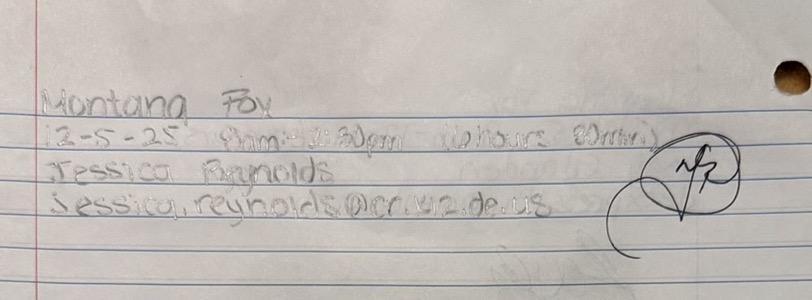 Montana Fox
12-5-25 8am-2:30pm (6 hours 30min)
Jessica Reynolds
jessica.reynolds@cr.k12.de.us